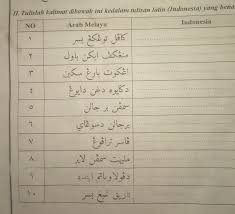 II. Tulislah kalimat dibawah ini kedalam tulisan latin (Indonesia) yang bena
NO Arab Melayu Indonesia
١ كاڤل توڠكڠ بسر
٢ ايكن باون
٣ اڠكوت بارڠ
٤ دكايوه دان دايوڠ
٥ سمڤن بر جالن
٦ برجالن دسوڠاي
٧ ڤاسر تراڤوڠ
٨ مليهت سمڤن لاير
٩ دڤولاو باتم
١٠ تاريق بسر